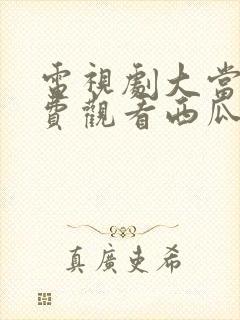 電視劇大當
費觀看西瓜
真廣史希